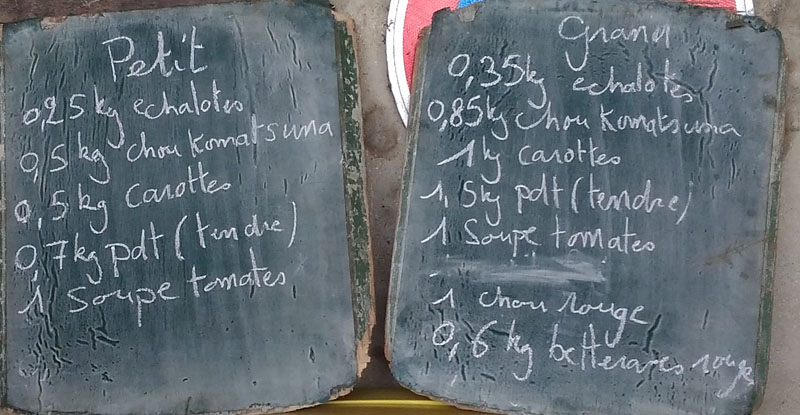 Petit
0,25 kg echalotes
0,5 kg chou Komatsuna
0,5 kg carottes
0,7 kg pdt (tendre)
1 Soupe tomates
Grand
0,35 kg echalotes
0,85 kg chou Komatsuna
1 kg carottes
1,5 kg pdt (tendre)
1 Soupe tomates
1 chou rouge
0,6 kg betteraves rouge